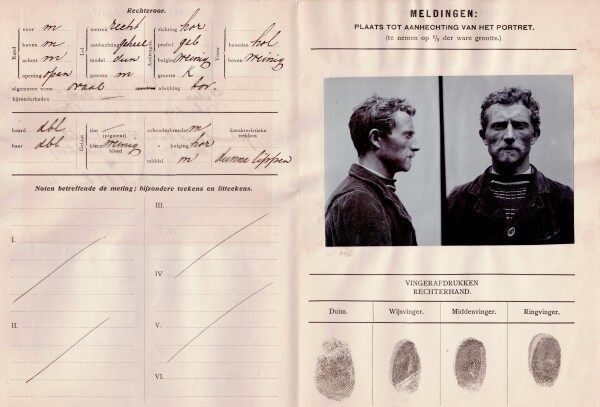 Rechteroor.
Rand
voor m
boven m
achter m
opening open
Lel
omtrek recht
aanhechting geheel
model dun
grootte m
Antitragus
richting hor
profiel geb
buiging weinig
grootte k
Vouw
beneden hol
boven weinig
algemeene vorm ovaal
afwijking bov.
bijzonderheden
baard dbl
haar dbl
Gelaat
tint
(pigment)
kleur weinig
bloed
schouderbreedte m
buiging hor
middel m
karakteristieke
trekken
dunne lippen
Noten betreffende de meting; bijzondere teekens en litteekens.
I.
II.
III.
IV
V.
VI.
MELDINGEN:
PLAATS TOT AANHECHTING VAN HET PORTRET.
(te nemen op 1/7 der ware grootte.)
VINGERAFDRUKKEN
RECHTERHAND.
Duim. Wijsvinger. Middenvinger. Ringvinger.